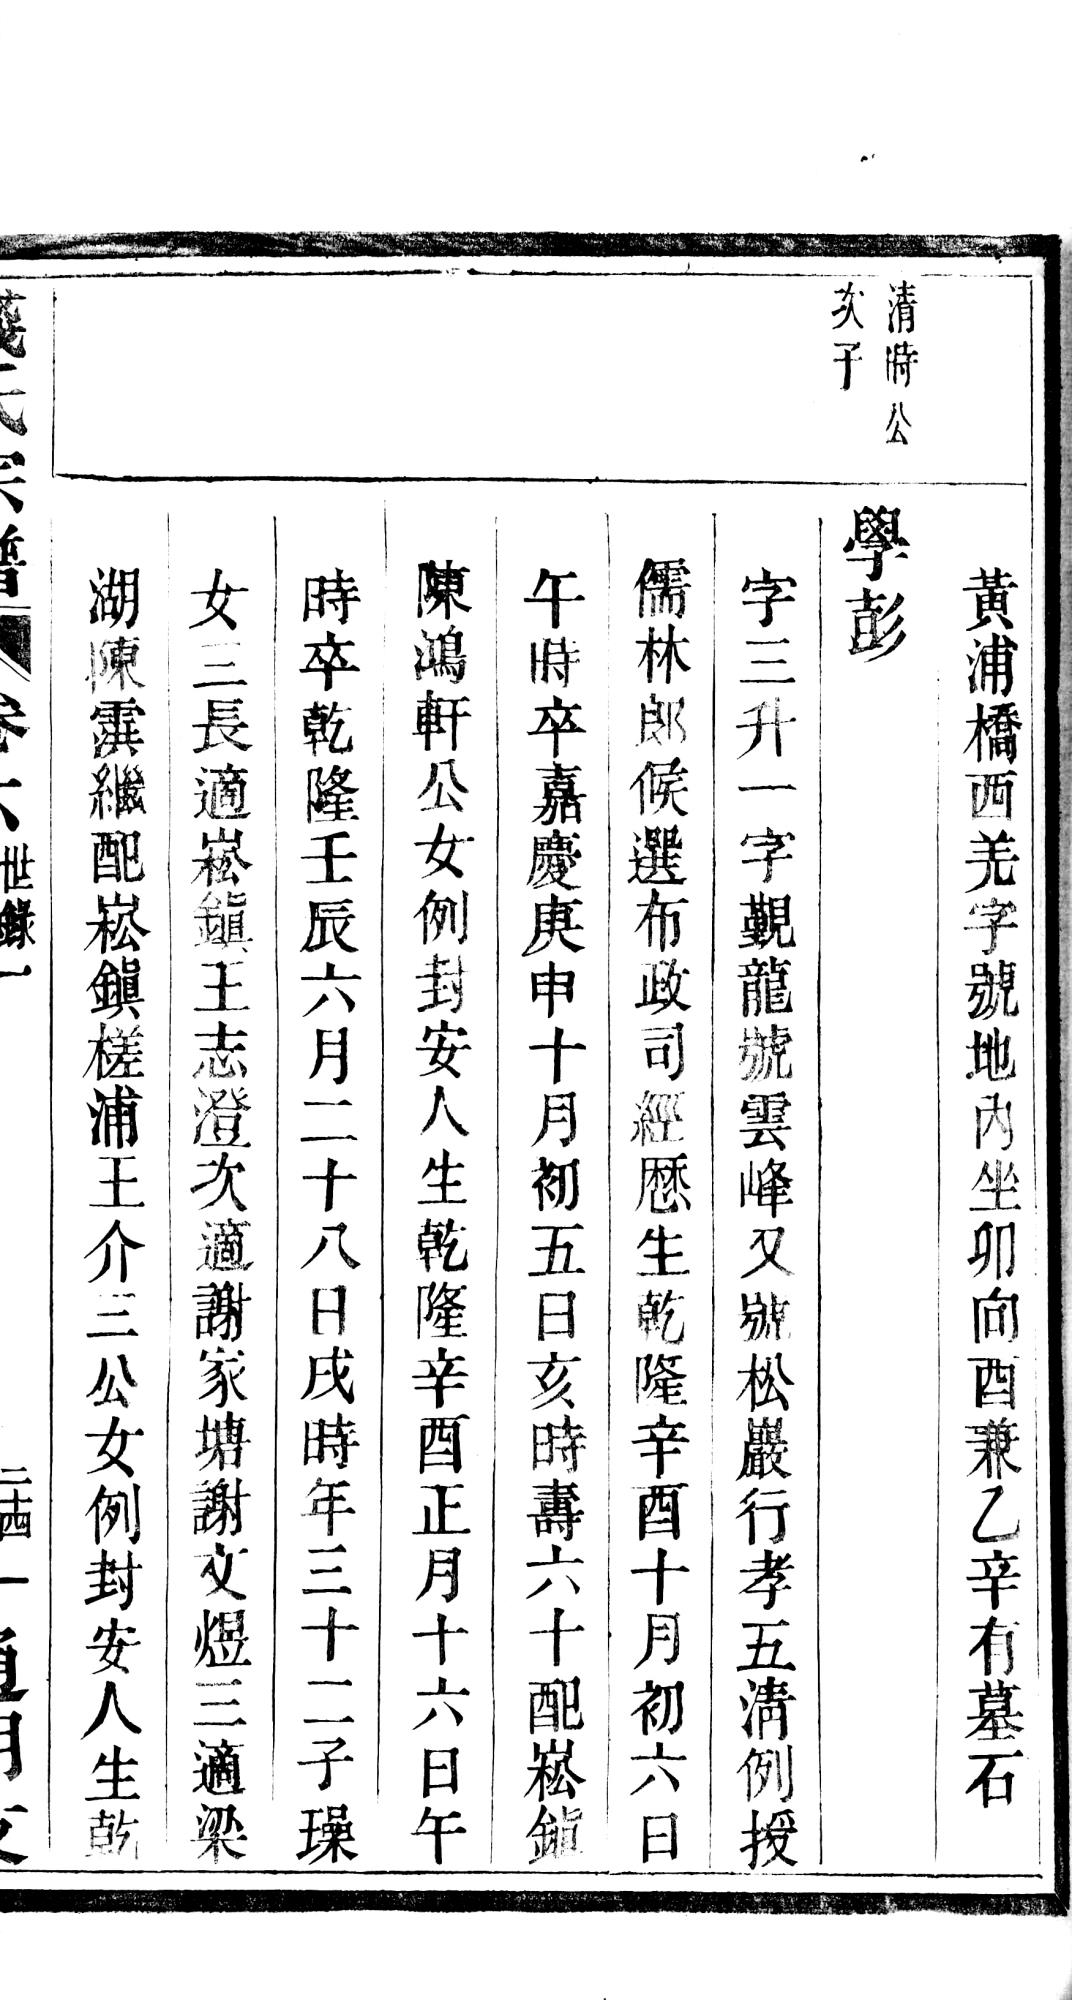 黃浦橋西羌字號地內坐卯向酉兼乙辛有墓石
清時公
次子
學彭
字三升一字覲龍號雲峰又號松巖行孝五淸例授
儒林郎候選布政司經歷生乾隆辛酉十月初六日
午時卒嘉慶庚申十月初五日亥時壽六十配崧鎭
陳鴻軒公女例封安人生乾隆辛酉正月十六日午
時卒乾隆壬辰六月二十八日戌時年三十二子璪
女三長適崧鎭王志澄次適謝家塘謝文煜三適梁
湖陳霟繼配崧鎭槎浦王介三公女例封安人生乾
氏宗譜
卷六
世錄一
二十四
通明支